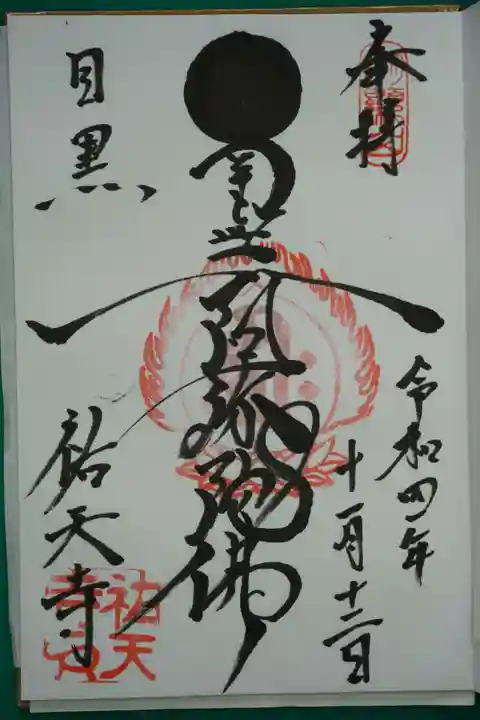 奉拝
令和四年
十一月十二日
南無阿弥陀佛
目黒
祐天寺
祐天
寺